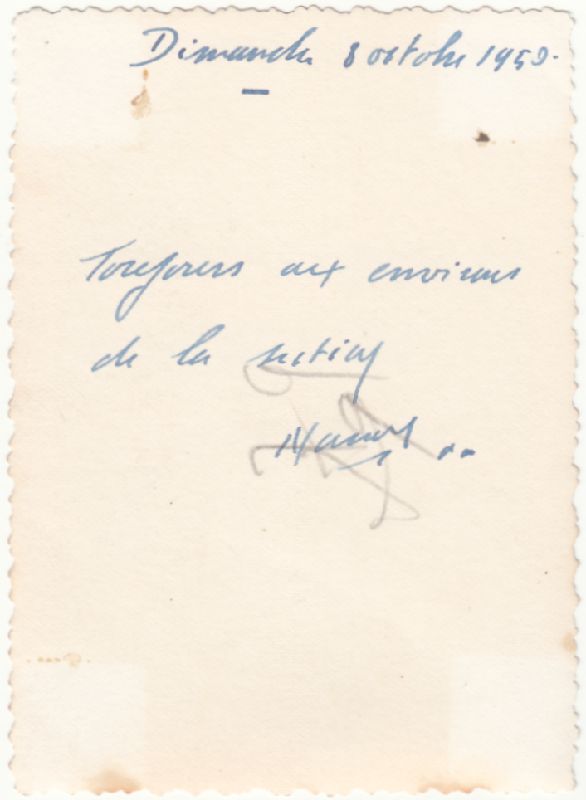 Dimanche 8 octobre 1950.
Toujours aux environs
de la section